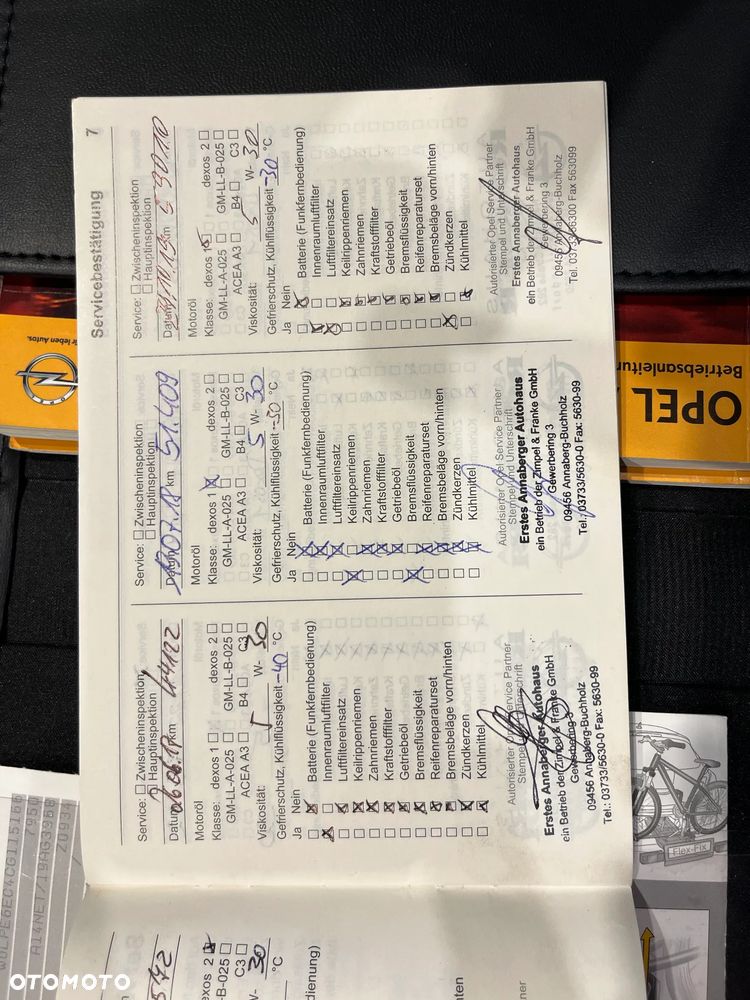 7
Servicebestätigung
Service: ☐ Zwischeninspektion
☐ Hauptinspektion
Datum 06.06.17 km 44122
Motoröl
Klasse: dexos 1 ☐ dexos 2 ☐
GM-LL-A-025 ☐ GM-LL-B-025 ☐
ACEA A3 ☐ B4 ☐ C3 ☐
Viskosität: 5 W- 30
Gefrierschutz, Kühlflüssigkeit -40 °C
Ja Nein
☐ ☒ Batterie (Funkfernbedienung)
☒ ☐ Innenraumluftfilter
☐ ☒ Luftfiltereinsatz
☐ ☒ Keilrippenriemen
☐ ☒ Zahnriemen
☐ ☒ Kraftstofffilter
☐ ☒ Getriebeöl
☐ ☒ Bremsflüssigkeit
☐ ☒ Reifenreparaturset
☐ ☒ Bremsbeläge vorn/hinten
☐ ☒ Zündkerzen
☐ ☒ Kühlmittel
Autorisierter Opel Service Partner
Stempel und Unterschrift
Erstes Annaberger Autohaus
ein Betrieb der Zimpel & Franke GmbH
Gewerbering 3
09456 Annaberg-Buchholz
Tel.: 03733/5630-0 Fax: 5630-99
Service: ☐ Zwischeninspektion
☐ Hauptinspektion
Datum 07.18 km 51.409
Motoröl
Klasse: dexos 1 ☒ dexos 2 ☐
GM-LL-A-025 ☐ GM-LL-B-025 ☐
ACEA A3 ☐ B4 ☐ C3 ☐
Viskosität: 5 W- 30
Gefrierschutz, Kühlflüssigkeit -30 °C
Ja Nein
☐ ☒ Batterie (Funkfernbedienung)
☐ ☒ Innenraumluftfilter
☐ ☒ Luftfiltereinsatz
☒ ☐ Keilrippenriemen
☐ ☒ Zahnriemen
☐ ☒ Kraftstofffilter
☐ ☒ Getriebeöl
☒ ☐ Bremsflüssigkeit
☐ ☒ Reifenreparaturset
☐ ☒ Bremsbeläge vorn/hinten
☐ ☒ Zündkerzen
☐ ☒ Kühlmittel
Autorisierter Opel Service Partner
Stempel und Unterschrift
Erstes Annaberger Autohaus
ein Betrieb der Zimpel & Franke GmbH
Gewerbering 3
09456 Annaberg-Buchholz
Tel.: 03733/5630-0 Fax: 5630-99
Service: ☐ Zwischeninspektion
☐ Hauptinspektion
Datum 10.19 km 59010
Motoröl
Klasse: dexos 1 ☒ dexos 2 ☐
GM-LL-A-025 ☐ GM-LL-B-025 ☐
ACEA A3 ☐ B4 ☐ C3 ☐
Viskosität: 5 W- 30
Gefrierschutz, Kühlflüssigkeit -30 °C
Ja Nein
☐ ☒ Batterie (Funkfernbedienung)
☒ ☐ Innenraumluftfilter
☒ ☐ Luftfiltereinsatz
☐ ☒ Keilrippenriemen
☐ ☒ Zahnriemen
☐ ☒ Kraftstofffilter
☐ ☒ Getriebeöl
☐ ☒ Bremsflüssigkeit
☐ ☒ Reifenreparaturset
☐ ☒ Bremsbeläge vorn/hinten
☒ ☐ Zündkerzen
☐ ☒ Kühlmittel
Autorisierter Opel Service Partner
Stempel und Unterschrift
Erstes Annaberger Autohaus
ein Betrieb der Zimpel & Franke GmbH
Gewerbering 3
09456 Annaberg-Buchholz
Tel. 03733/56300 Fax 563099
dexos 2
GM-LL-B-025 ☐
C3 ☐
W- 30
°C
dienung)
OPEL
Betriebsanleitun
ir leben Autos.
Flex-Fix
OTOMOTO